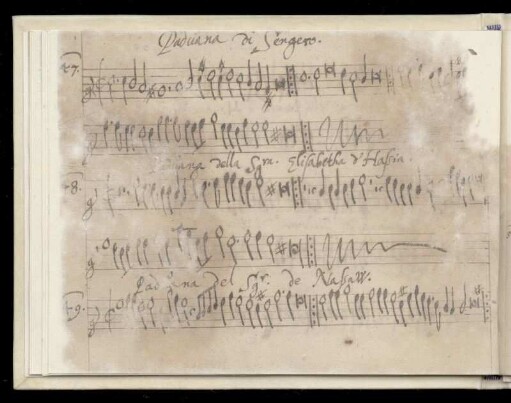 Paduana di Sengero.
47.
ana della Sra. Elisabetha d'Hassia.
48.
Paduana del Sr. de Nassaw.
49.